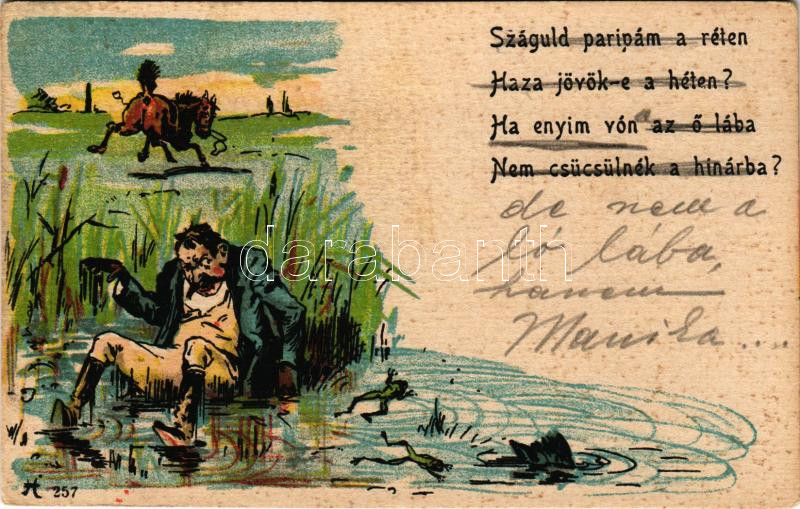 Száguld paripám a réten
Haza jövök-e a héten?
Ha enyim vón a az ő lába
Nem csücsülnék a hinárba?
de nem a
ló lába,
hanem
Mariska....
darabanth
H 257